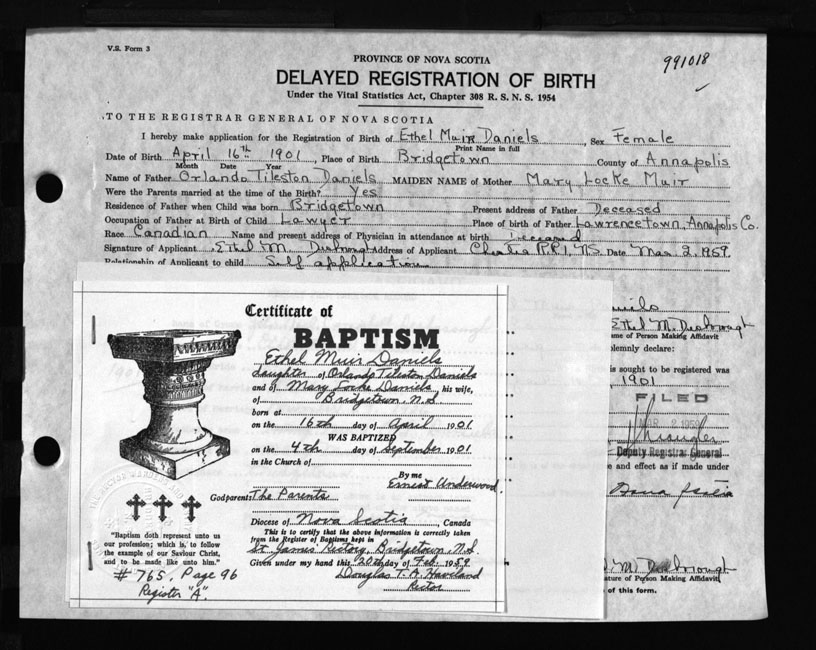 V.S. Form 3
991018
PROVINCE OF NOVA SCOTIA
DELAYED REGISTRATION OF BIRTH
Under the Vital Statistics Act, Chapter 308 R. S. N. S. 1954
TO THE REGISTRAR GENERAL OF NOVA SCOTIA
I hereby make application for the Registration of Birth of Ethel Muir Daniels, Sex Female
Print Name in full
Date of Birth April 16th 1901, Place of Birth Bridgetown County of Annapolis
Month Date Year
Name of Father Orlando Tileston Daniels MAIDEN NAME of Mother Mary Locke Muir
Were the Parents married at the time of the Birth? Yes
Residence of Father when Child was born Bridgetown Present address of Father Deceased
Occupation of Father at Birth of Child Lawyer Place of birth of Father Lawrencetown, Annapolis Co.
Race Canadian Name and present address of Physician in attendance at birth Deceased
Signature of Applicant Ethel M. Desbrough Address of Applicant R.R.1, N.S. Date Mar. 2, 1959.
Relationship of Applicant to child Self application
Certificate of
BAPTISM
Ethel Muir Daniels
daughter of Orlando Tileston Daniels
and of Mary Locke Daniels his wife,
of Bridgetown, N.S
born at
on the 16th day of April 1901
WAS BAPTIZED
on the 4th day of September 1901
in the Church of
By me
Ernest Underwood
Godparents The Parents
Diocese of Nova Scotia, Canada
This is to certify that the above information is correctly taken
from the Register of Baptisms kept in
St James Rectory, Bridgetown, N.S.
Given under my hand this 20th day of Feb. 1959
Douglas T. A.
Rector
"Baptism doth represent unto us
our profession; which is, to follow
the example of our Saviour Christ,
and to be made like unto him."
# 765, Page 96
Register "A".
Ethel M. Desbrough
me of Person Making Affidavit
olemnly declare:
is sought to be registered was
1901
FILED
MAR 2 1959
Deputy Registrar General
e and effect as if made under
M. Desbrough
ature of Person Making Affidavit
of this form.